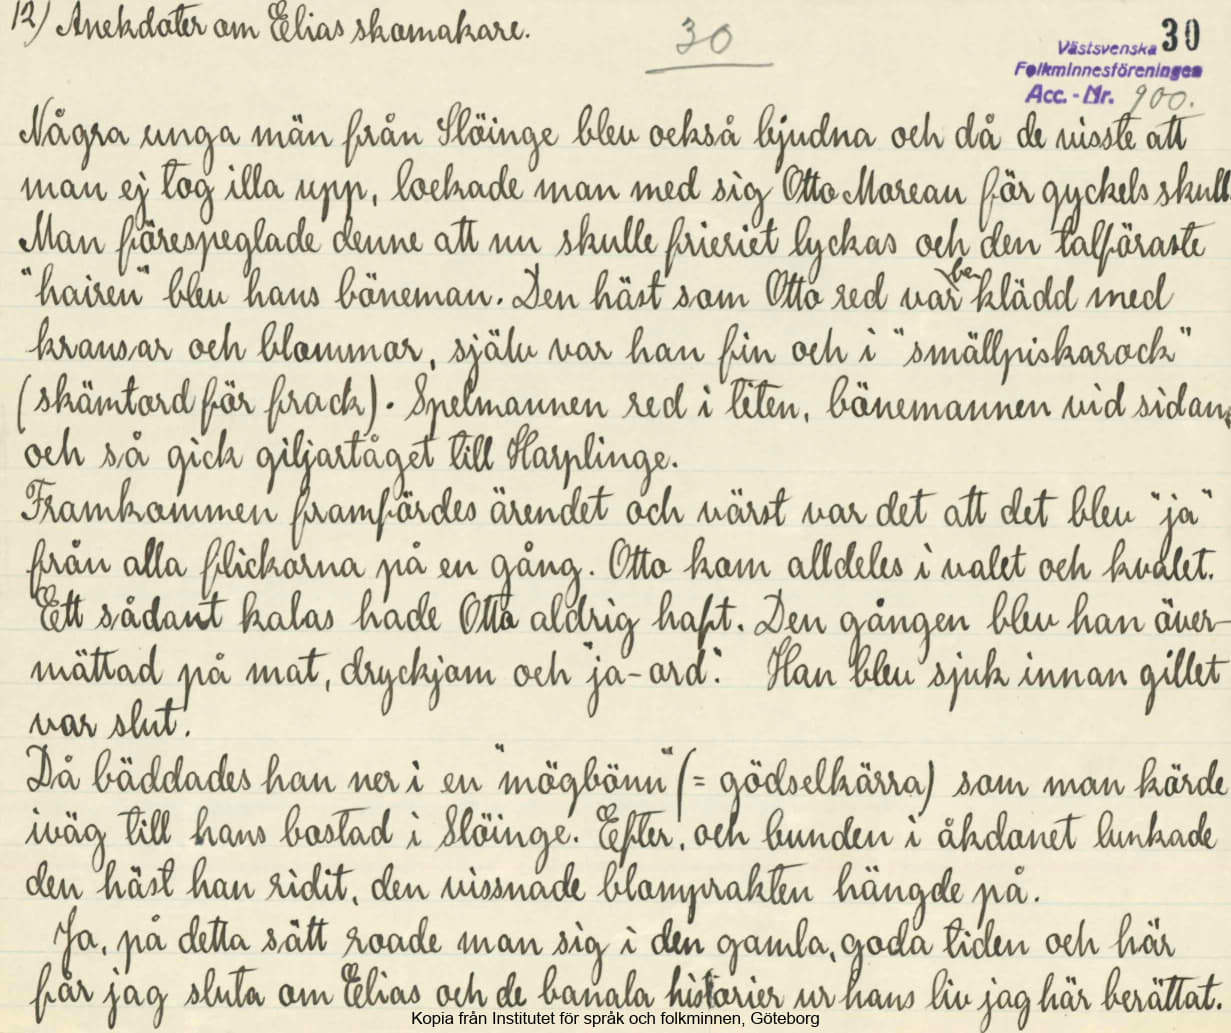 12) Anekdoter om Elias skomakare.
30
30
Västsvenska
Folkminnesföreningen
Acc. - Nr. 900.
Några unga män från Slöinge blev också bjudna och då de visste att
man ej tog illa upp, lockade man med sig Otto Moreau för gyckels skull.
Man förespeglade denne att nu skulle frieriet lyckas och den talföraste
"hairen" blev hans böneman. Den häst som Otto red var beklädd med
kransar och blommor, själv var han fin och i "smällpiskarock"
(skämtord för frack). Spelmannen red i téten, bönemannen vid sidan,
och så gick giljartåget till Harplinge.
Framkommen framfördes ärendet och värst var det att det blev "ja"
från alla flickorna på en gång. Otto kom alldeles i valet och kvalet.
Ett sådant kalas hade Otto aldrig haft. Den gången blev han över-
mättad på mat, dryckjom och "ja-ord". Han blev sjuk innan gillet
var slut.
Då bäddades han ner i en "mögbönn" (= gödselkärra) som man körde
iväg till hans bostad i Slöinge. Efter, och bunden i åkdonet lunkade
den häst han ridit, den vissnade blomprakten hängde på.
Ja, på detta sätt roade man sig i den gamla, goda tiden och här
får jag sluta om Elias och de banala historier ur hans liv jag här berättat.
Kopia från Institutet för språk och folkminnen, Göteborg